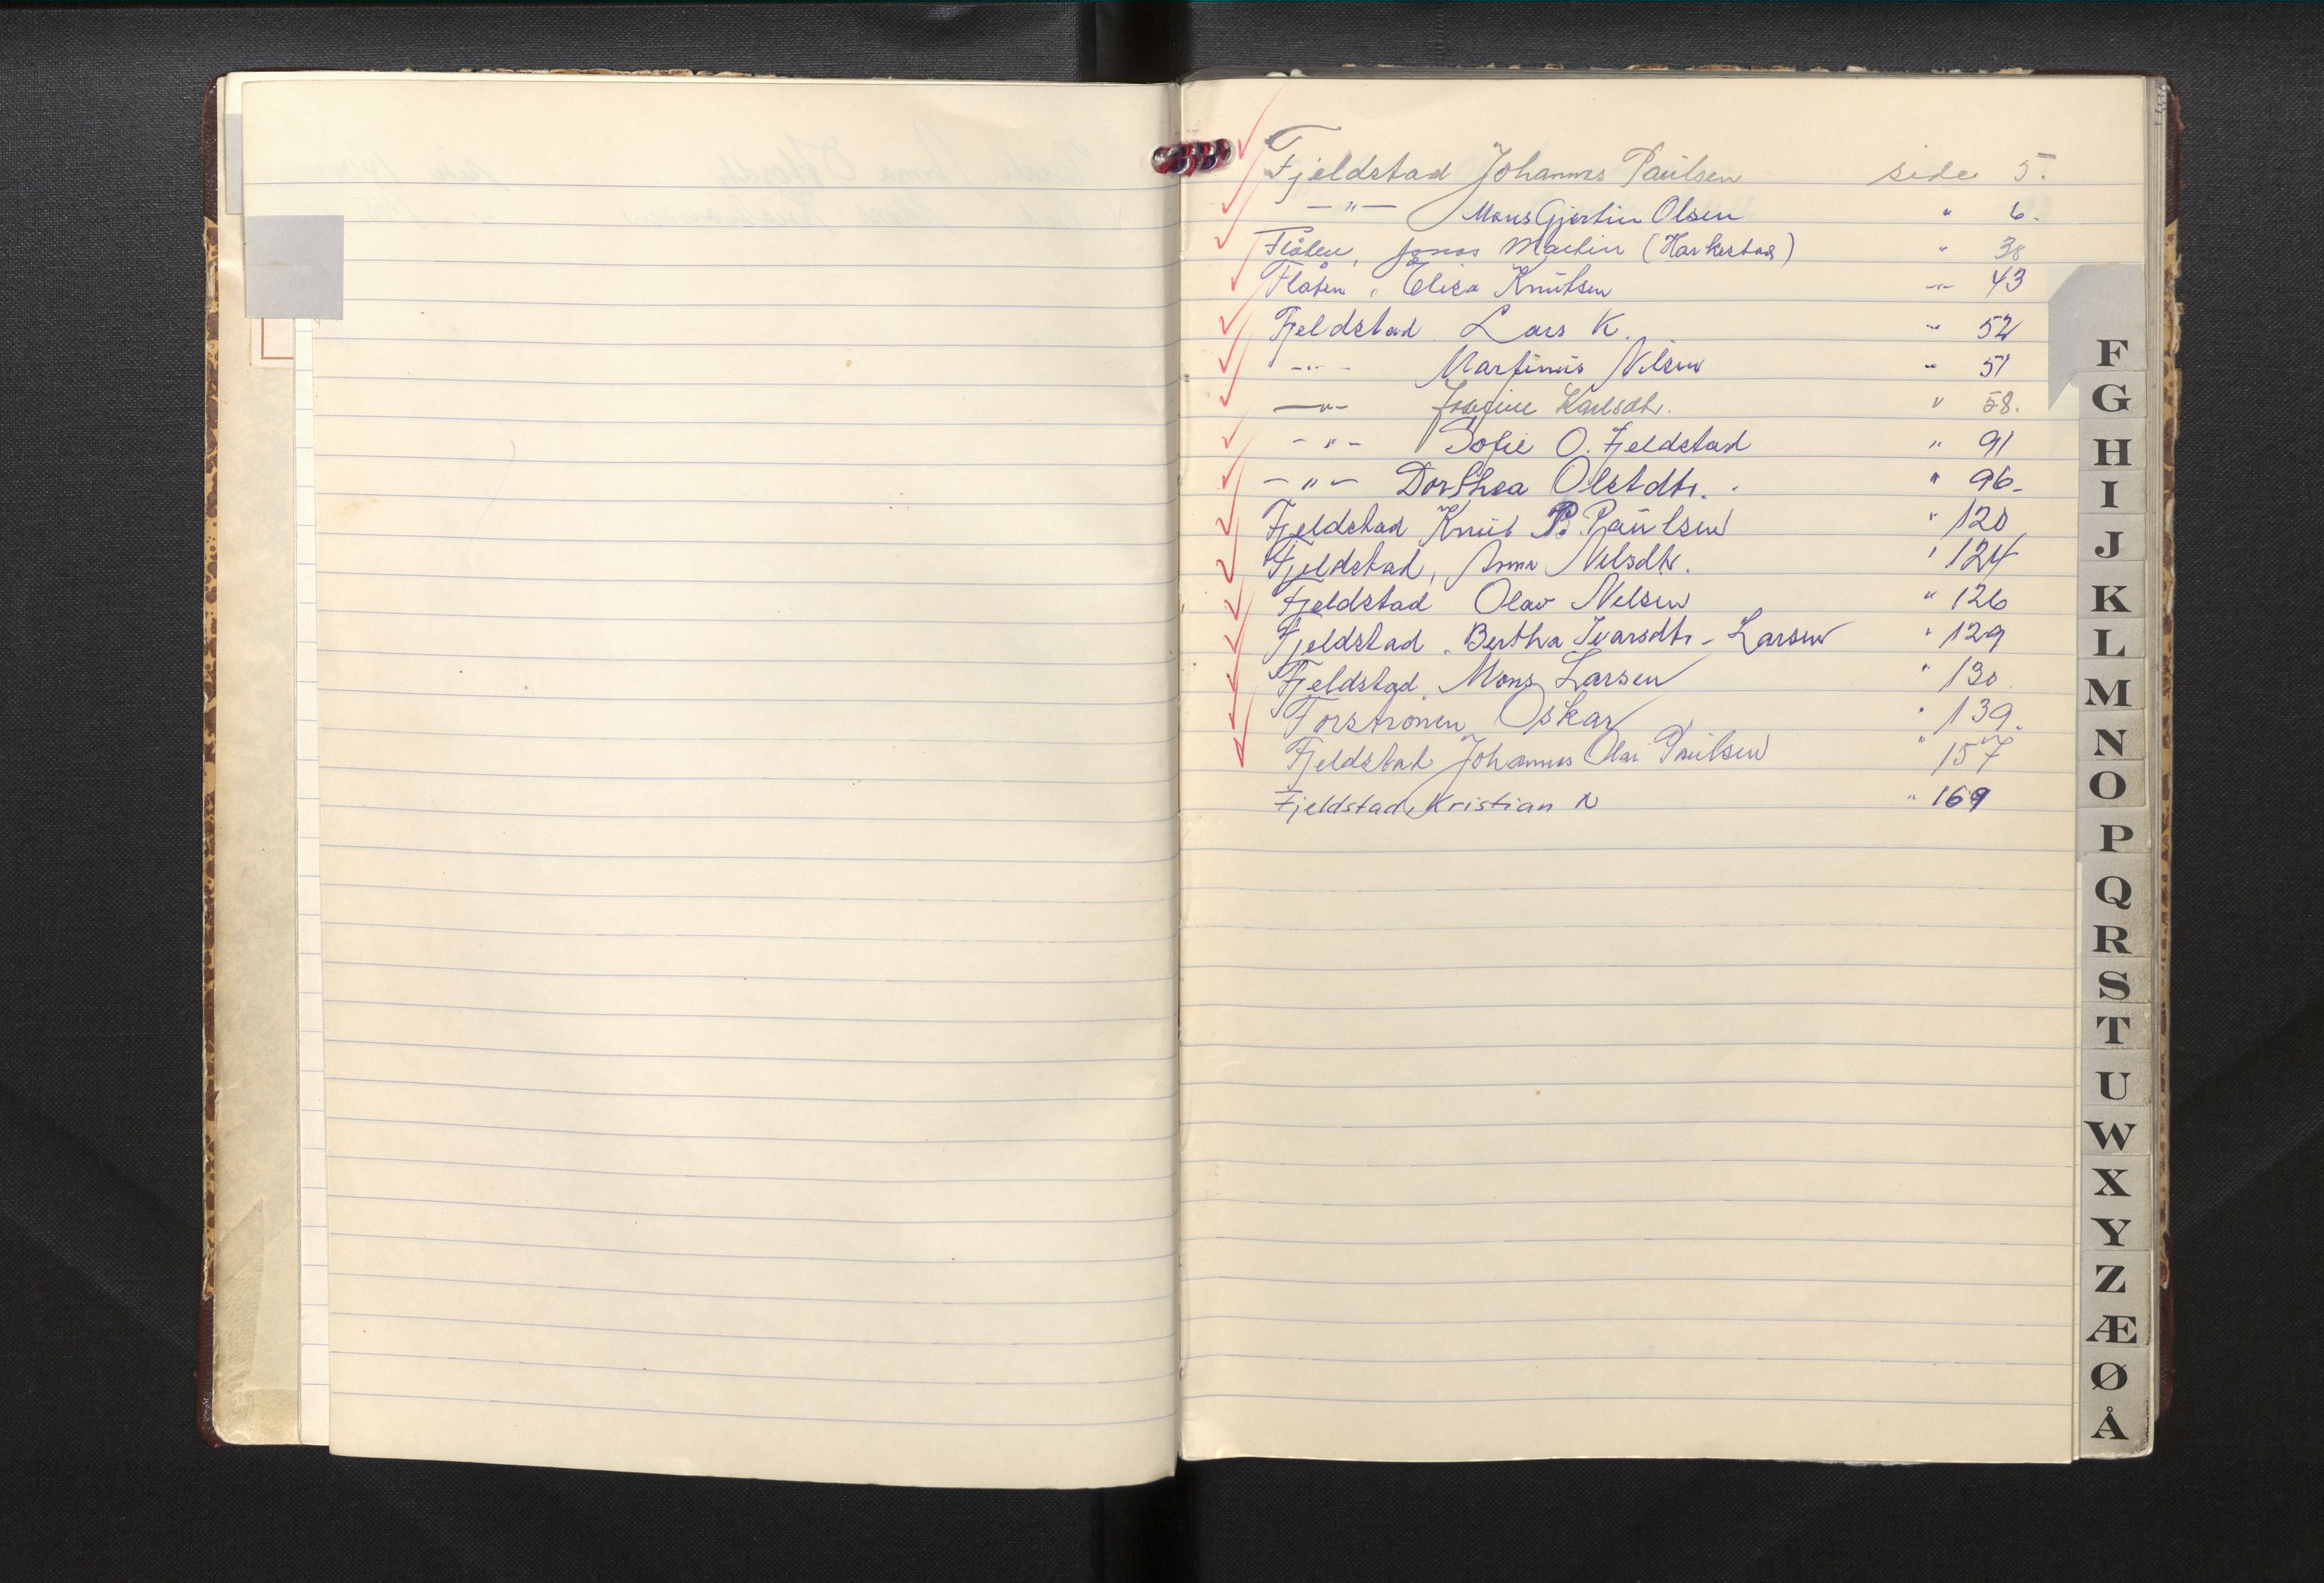 Fjeldstad Johannes Paulsen side 5.
—"— Mons Gjertin Olsen " 6.
Flåten, Jonas Martin (Harkestad) " 38
Flåten, Elisa Knutsen -"- 43
Fjeldstad Lars K. -"- 52
-"- Martinus Nilsen " 51
—"— Josefine Karlsdtr. " 58.
-"- Sofie O. Fjeldstad " 91
-"- Dorthea Olsdtr. " 96-
Fjeldstad Knut P. Paulsen " 120
Fjeldstad, Anna Nilsdtr. " 124
Fjeldstad Olav Nelsen " 126
Fjeldstad. Bertha Ivarsdtr - Larsen " 129
Fjeldstad. Mons Larsen " 130
Forstrønen Oskar " 139.
Fjeldstad Johannes Olai Paulsen " 157
Fjeldstad, Kristian N " 169
F
G
H
I
J
K
L
M
N
O
P
Q
R
S
T
U
W
X
Y
Z
Æ
Ø
Å